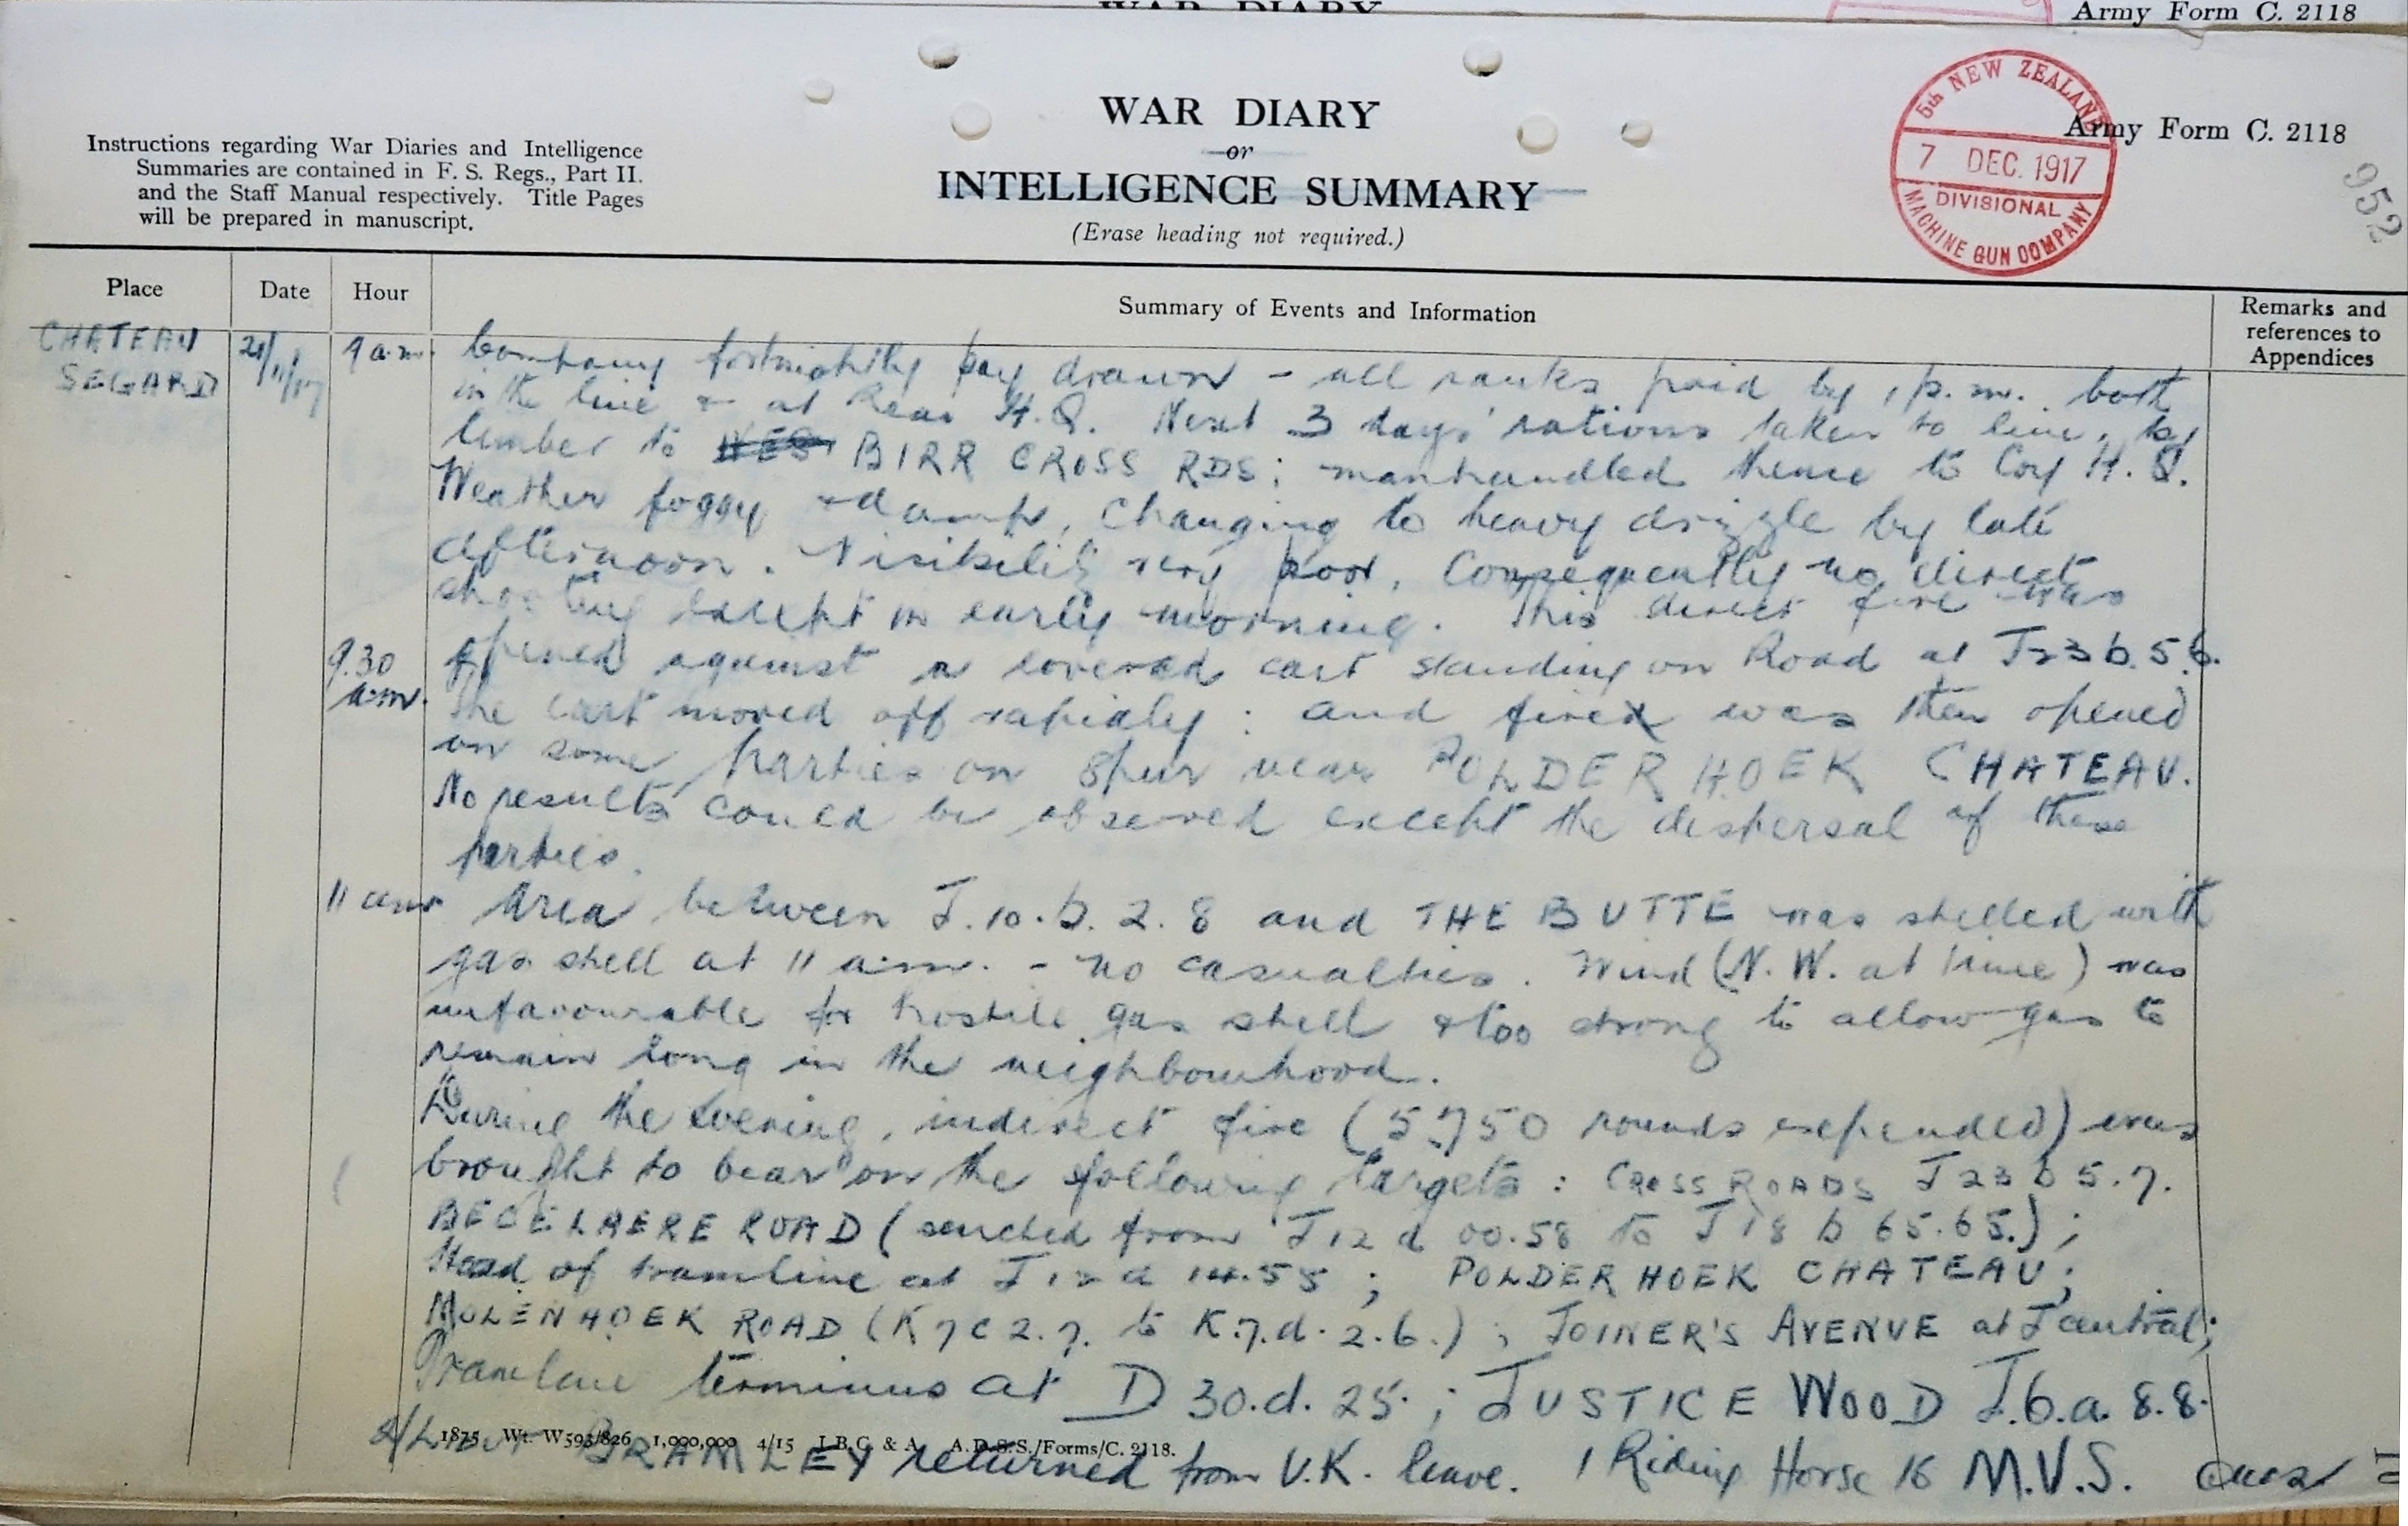 WAR DIARY
Army Form C. 2118
5th NEW ZEALAND
7 DEC. 1917
DIVISIONAL
MACHINE GUN COMPANY
WAR DIARY
or
INTELLIGENCE SUMMARY
(Erase heading not required.)
Army Form C. 2118
952
Instructions regarding War Diaries and Intelligence
Summaries are contained in F. S. Regs., Part II.
and the Staff Manual respectively. Title Pages
will be prepared in manuscript.
Place Date Hour Summary of Events and Information Remarks and references to Appendices
CHATEAU SEGARD 21/11/17 9 a.m. Company fortnightly pay drawn - all ranks paid by 1 p.m. both
in the line & at Rear H.Q. Next 3 days' rations taken to line, by
limber to BIRR CROSS RDS; manhandled thence to Coy H.Q.
Weather foggy & damp, changing to heavy drizzle by late
afternoon. Visibility very poor, Consequently no direct
shooting except in early morning. This direct fire was
9.30 a.m. opened against a covered cart standing on Road at J23b.5.6.
The cart moved off rapidly: and fire was then opened
on some parties on spur near POLDERHOEK CHATEAU.
No results could be observed except the dispersal of these
parties.
11 am Area between J.10.b.2.8 and THE BUTTE was shelled with
gas shell at 11 a.m. - no casualties. Wind (N.W. at time) was
unfavourable for hostile gas shell & too strong to allow gas to
remain long in the neighbourhood.
During the evening, indirect fire (5,750 rounds expended) was
brought to bear on the following targets: CROSS ROADS J23b5.7.
BECELAERE ROAD (searched from J12d 00.58 to J18b 65.65.);
Head of tramline at J12d 14.55; POLDERHOEK CHATEAU;
MOLENHOEK ROAD (K7c2.7. to K.7.d.2.6.); JOINER'S AVENUE at J central;
Tramline terminus at D30.d.25.; JUSTICE WOOD J.6.a.8.8.
1875 Wt. W593/826 1,000,000 4/15 J.B.C. & A. A.D.S.S./Forms/C. 2118.
2/Lieut BRAMLEY returned from U.K. leave. 1 Riding Horse to M.V.S.